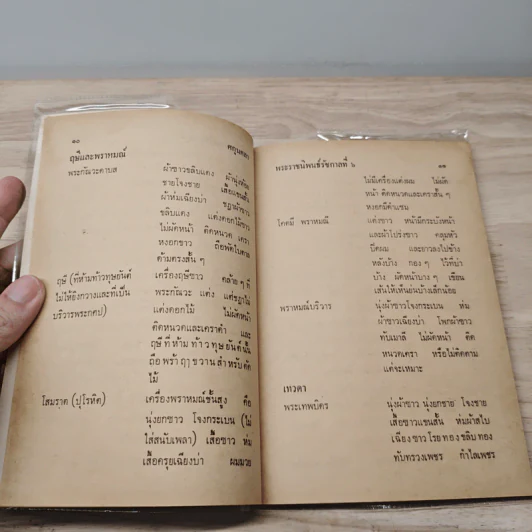 ๑๐
ศกุนตลา
ฤษีและพราหมณ์
พระกัณวะดาบส
ผ้าขาวขลิบแดง ผ้านุ่ง
ชายโจงชาย เสื้อแขนสั้น
ผ้าห่มเฉียงบ่า ชฎาผ้าขาว
ขลิบแดง แต่งดอกไม้ขาว
ไม่ผัดหน้า ติดหนวด เครา
หงอกขาว ถือพัดใบตาล
ด้ามตรงสั้น ๆ
ฤษี (ที่ห้ามท้าวทุษยันต์
ไม่ให้ยิงกวางและที่เป็น
บริวารพระกศป)
เครื่องฤษีขาว คล้าย ๆ ที่
พระกัณวะ แต่ง แต่ชฎาไม่
แต่งดอกไม้ ไม่ผัดหน้า
ติดหนวดและเคราดำ และ
ฤษีที่ห้ามท้าวทุษยันต์นั้น
ถือพร้าฤๅขวานสำหรับตัด
ไม้
โสมราต (ปุโรหิต)
เครื่องพราหมณ์ชั้นสูง คือ
นุ่งยกขาว โจงกระเบน (ไม่
ใส่สนับเพลา) เสื้อขาว ห่ม
เสื้อครุยเฉียงบ่า ผมมวย
พระราชนิพนธ์รัชกาลที่ ๖
๑๑
ไม่มีเครื่องแต่งผม ไม่ผัด
หน้า ติดหนวดและเคราสั้น ๆ
หงอกมีดำแซม
โคตมี พราหมณี
แต่งขาว หน้ามีกระบังหน้า
และผ้าโปร่งขาว คลุมหัว
ปิดผม และยาวลงไปข้าง
หลังบ้าง กอง ๆ ไว้ที่บ่า
บ้าง ผัดหน้าบาง ๆ เขียน
เส้นให้เห็นย่นบ้างเล็กน้อย
พราหมณ์บริวาร
นุ่งผ้าขาวโจงกระเบน ห่ม
ผ้าขาวเฉียงบ่า โพกผ้าขาว
ทับเมาลี ไม่ผัดหน้า ติด
หนวดเครา หรือไม่ติดตาม
แต่จะเหมาะ
เทวดา
พระเทพบิดร
นุ่งผ้าขาว นุ่งยกชาย โจงชาย
เสื้อขาวแขนสั้น ห่มผ้าสไบ
เฉียง ขาว โรยทอง ขลิบทอง
ทับทรวงเพชร กำไลเพชร